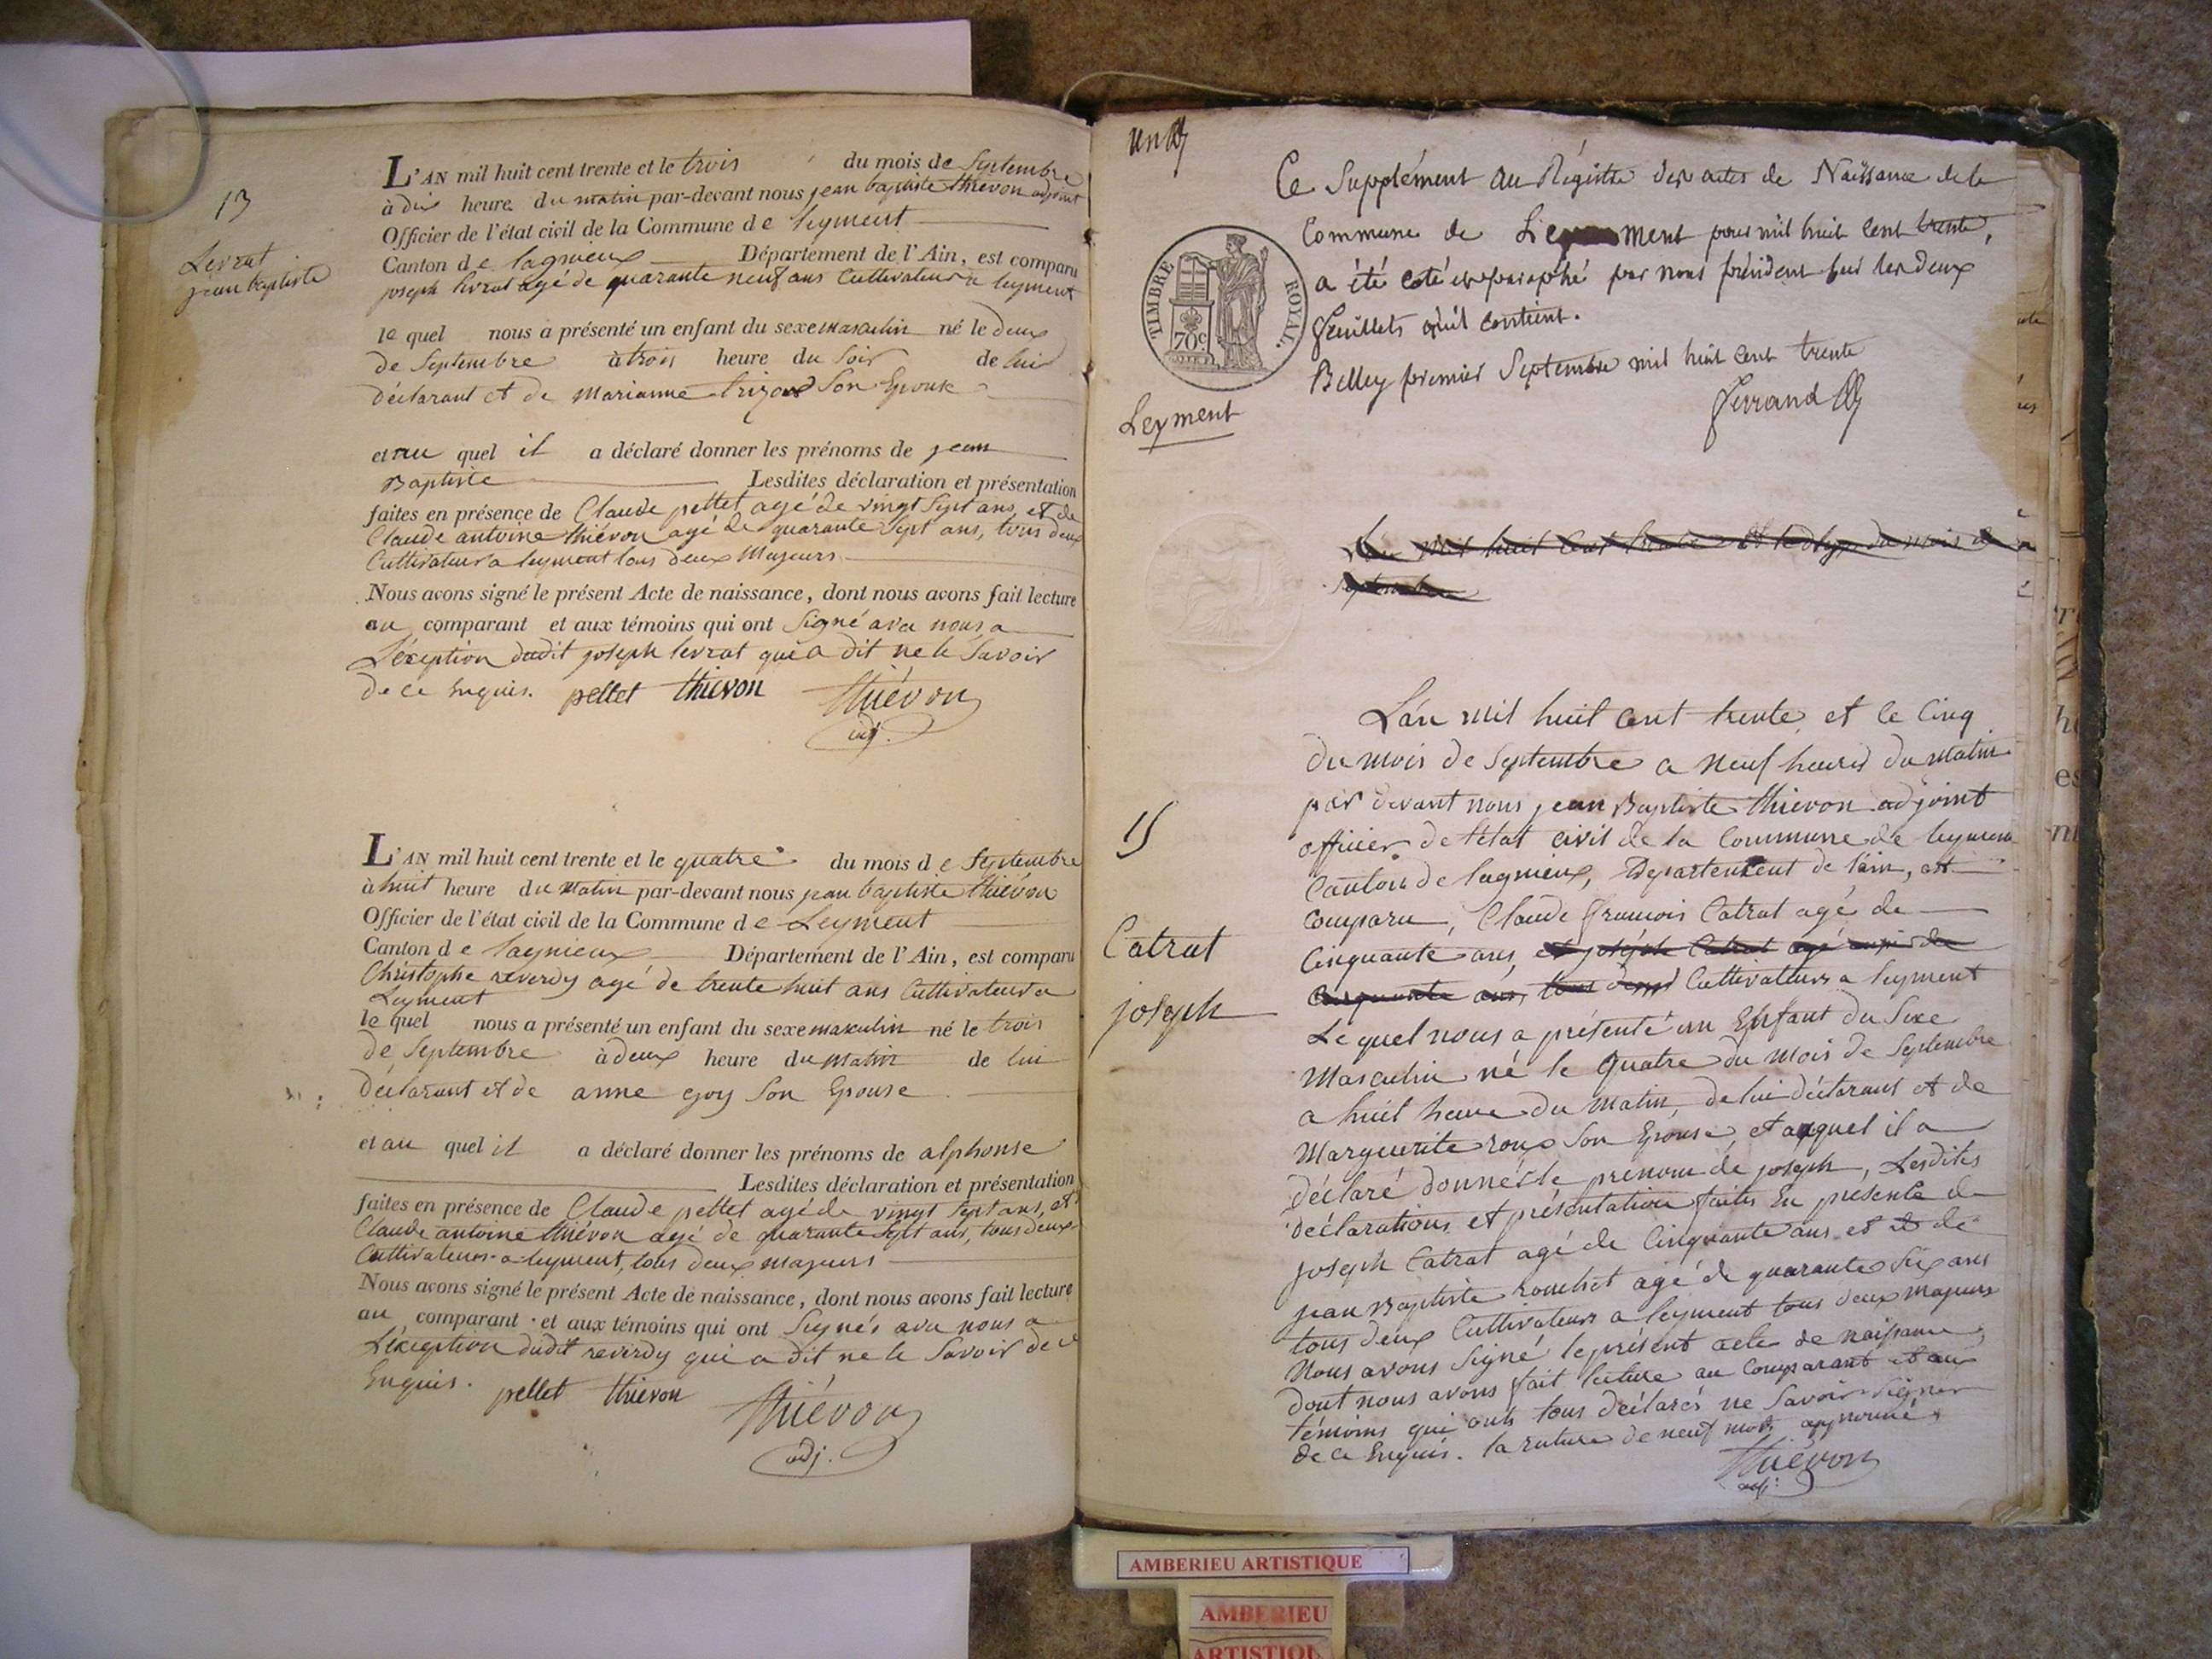 13
Levrat
jean baptiste
L'AN mil huit cent trente et le trois du mois de Septembre
à dix heure du matin par-devant nous jean baptiste thievon adjoint
Officier de l'état civil de la Commune de leyment
Canton de lagnieux Département de l'Ain, est comparu
joseph livrat agé de quarante neuf ans Cultivateur a leyment
le quel nous a présenté un enfant du sexe masculin né le deux
de Septembre à trois heure du Soir de lui
déclarant et de Marianne Son Epouse
et au quel il a déclaré donner les prénoms de jean
Baptiste Lesdites déclaration et présentation
faites en présence de Claude pellet agé de vingt Sept ans, et de
Claude antoine thiévon agé de quarante Sept ans, tous deux
Cultivateurs a leyment tous deux Majeurs
Nous avons signé le présent Acte de naissance, dont nous avons fait lecture
au comparant et aux témoins qui ont Signé avec nous a
L'éxception dudit joseph levrat qui a dit ne le Savoir
de ce Enquis. pellet thievon Thiévon
adj.
L'AN mil huit cent trente et le quatre du mois de Septembre
à huit heure du Matin par-devant nous jean baptiste thiévon
Officier de l'état civil de la Commune de Leyment
Canton de lagnieux Département de l'Ain, est comparu
Christophe reverdy agé de trente huit ans Cultivateur a
Leyment
le quel nous a présenté un enfant du sexe masculin né le trois
de Septembre à deux heure du Matin de lui
déclarant et de anne goy Son Epouse
et au quel il a déclaré donner les prénoms de alphonse
Lesdites déclaration et présentation
faites en présence de Claude pellet agé de vingt Sept ans, et
Claude antoine thiévon agé de quarante Sept ans, tous deux
Cultivateurs a leyment, tous deux majeurs
Nous avons signé le présent Acte de naissance, dont nous avons fait lecture
au comparant et aux témoins qui ont Signés avec nous a
L'éxception dudit reverdy qui a dit ne le Savoir de ce
Enquis. pellet thievon Thiévon
adj.
un
Ce Supplément au Régistre des actes de Naissance de la
Commune de Leyment pour mil huit cent trente,
a été coté et paraphé par nous président sur les deux
feuillets qu'il contient.
Belley premier Septembre mil huit cent trente
Ferrand
TIMBRE ROYAL.
70c
Leyment
L'an mil huit cent trente et le du mois de
Septembre
L'an mil huit cent trente, et le Cinq
du mois de Septembre a neuf heures du Matin
par devant nous jean Baptiste thievon adjoint
officier de l'état civil de la Commune de leyment
Canton de lagnieux, Departement de l'ain, est
comparu, Claude francois Catrat agé de
Cinquante ans, et joseph Catrat agé aussi de
Cinquante ans, tous deux Cultivateurs a leyment
Le quel nous a présenté un Enfant du Sexe
Masculin né le Quatre du Mois de Septembre
a huit heure du Matin, de lui déclarant et de
Marguerite roux Son Epouse, et auquel il a
déclaré donner le prenom de joseph, Lesdites
déclarations et présentation faites En présence de
joseph Catrat agé de Cinquante ans et de de
jean Baptiste agé de quarante Six ans
tous deux Cultivateurs a leyment tous deux Majeurs
Nous avons Signé le présent acte de naissance,
dont nous avons fait lecture au Comparant et aux
témoins qui ont tous déclarés ne Savoir Signer
de ce Enquis. la rature de neuf mots approuvé,
Thiévon
adj.
15
Catrat
joseph
AMBERIEU ARTISTIQUE
AMBERIEU
ARTISTIQU